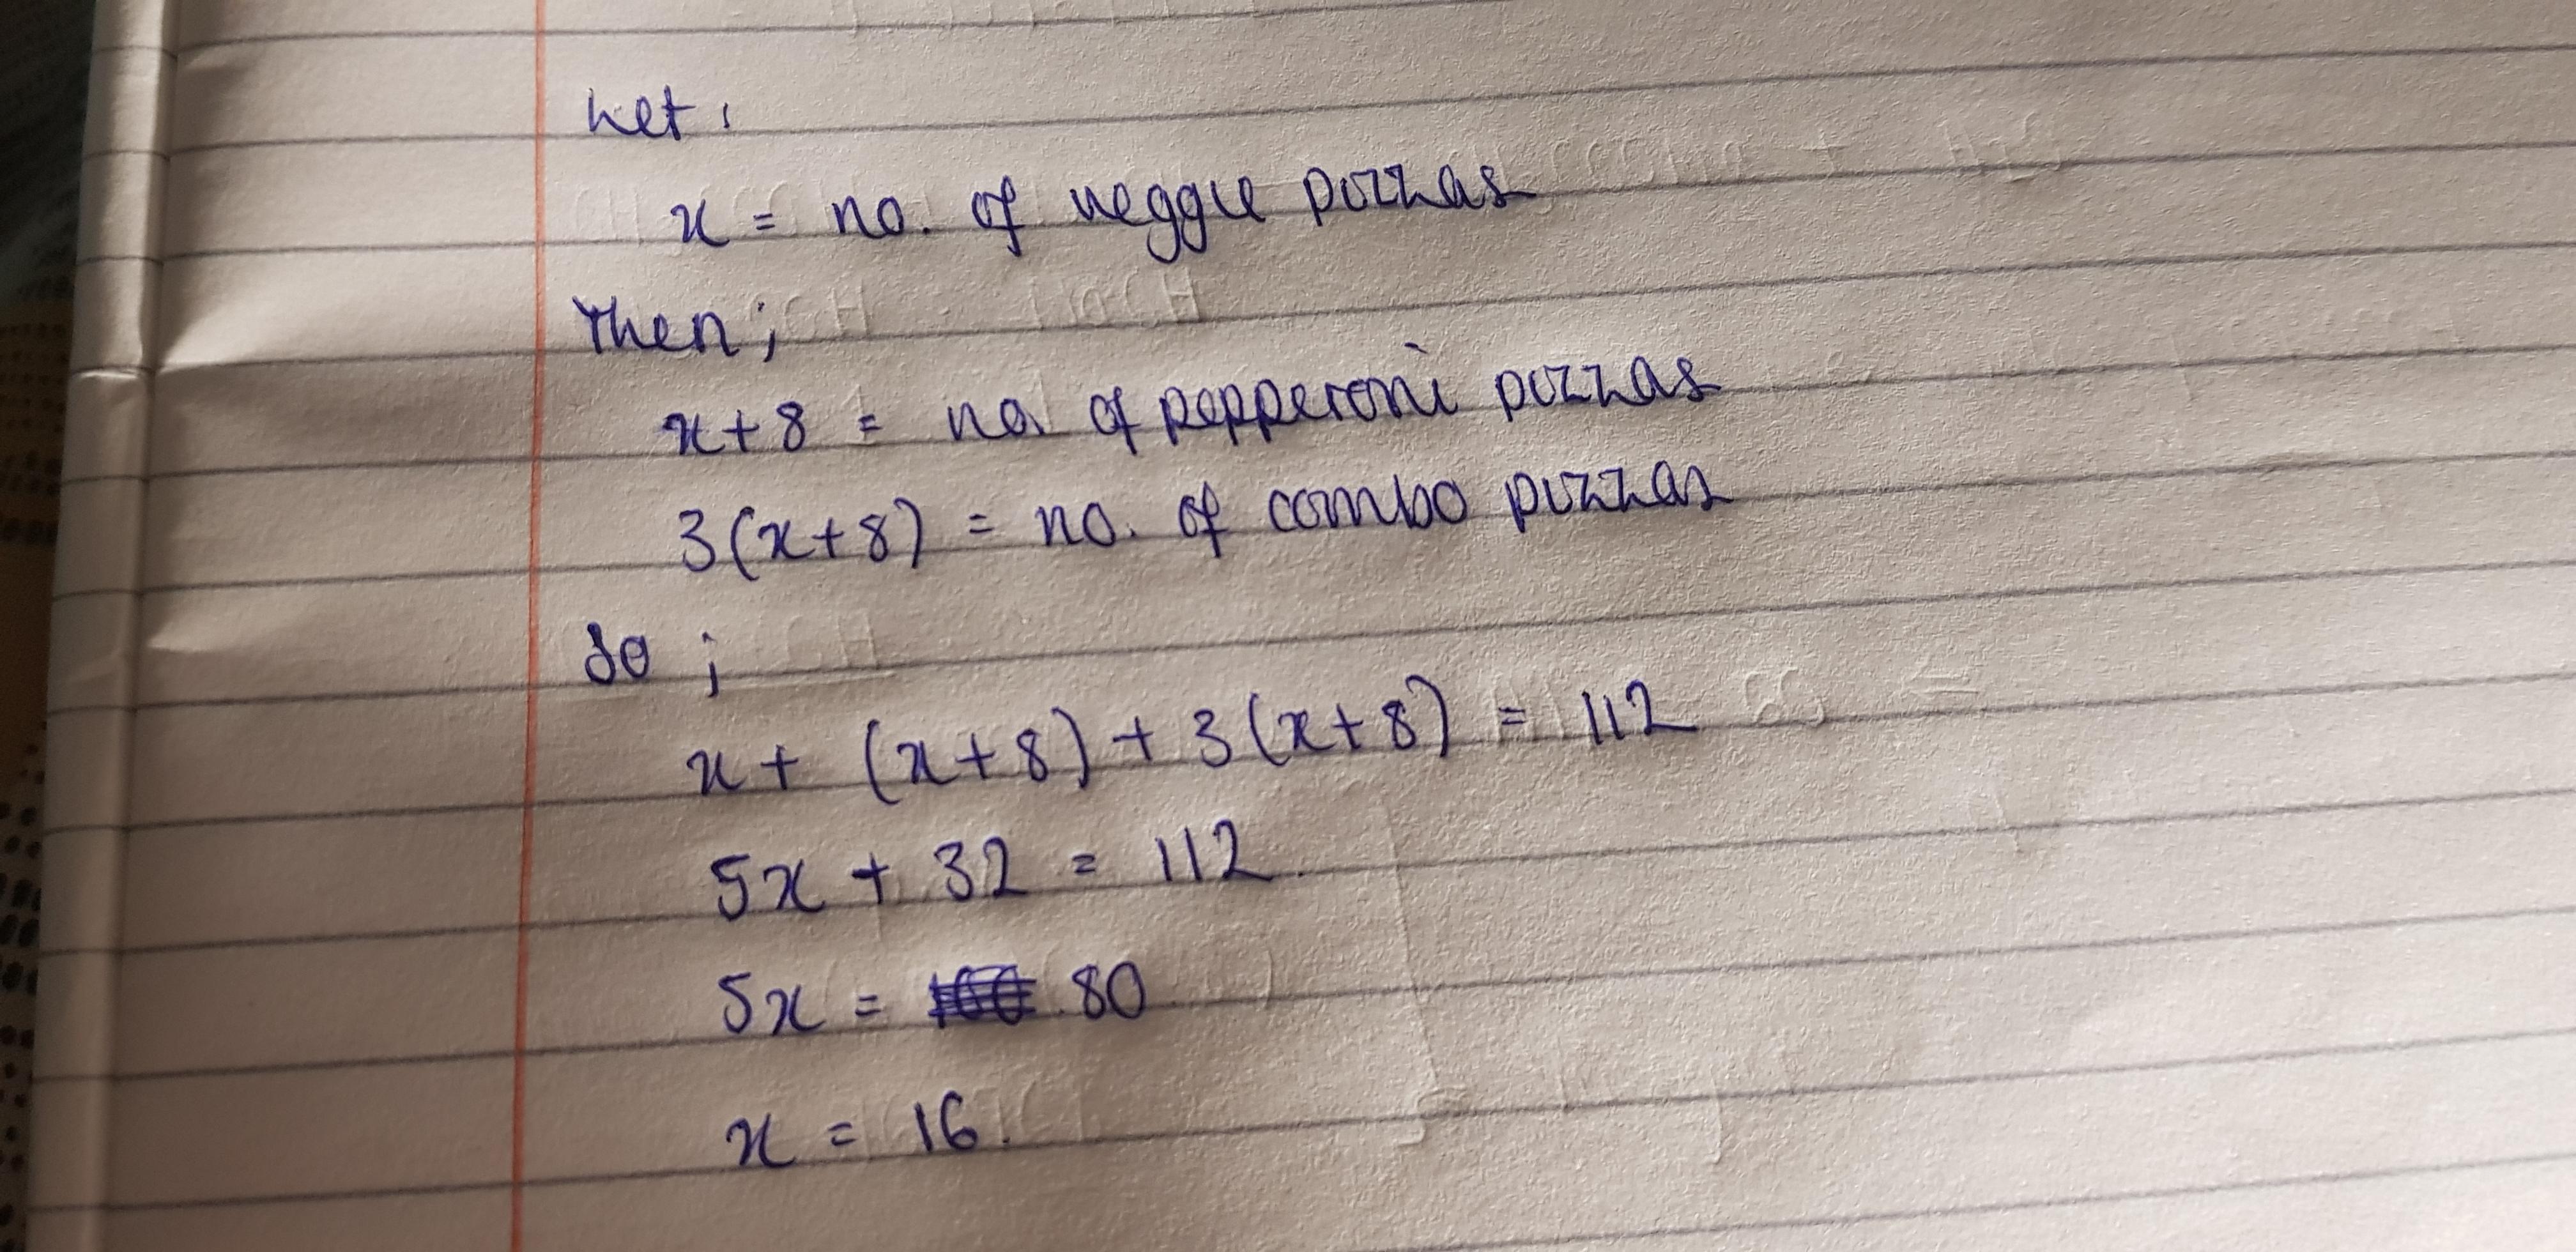 Let,
x = no. of veggie pizzas
Then;
x+8 = no. of pepperoni pizzas
3(x+8) = no. of combo pizzas
So ;
x + (x+8) + 3(x+8) = 112
5x + 32 = 112
5x = 80
x = 16.